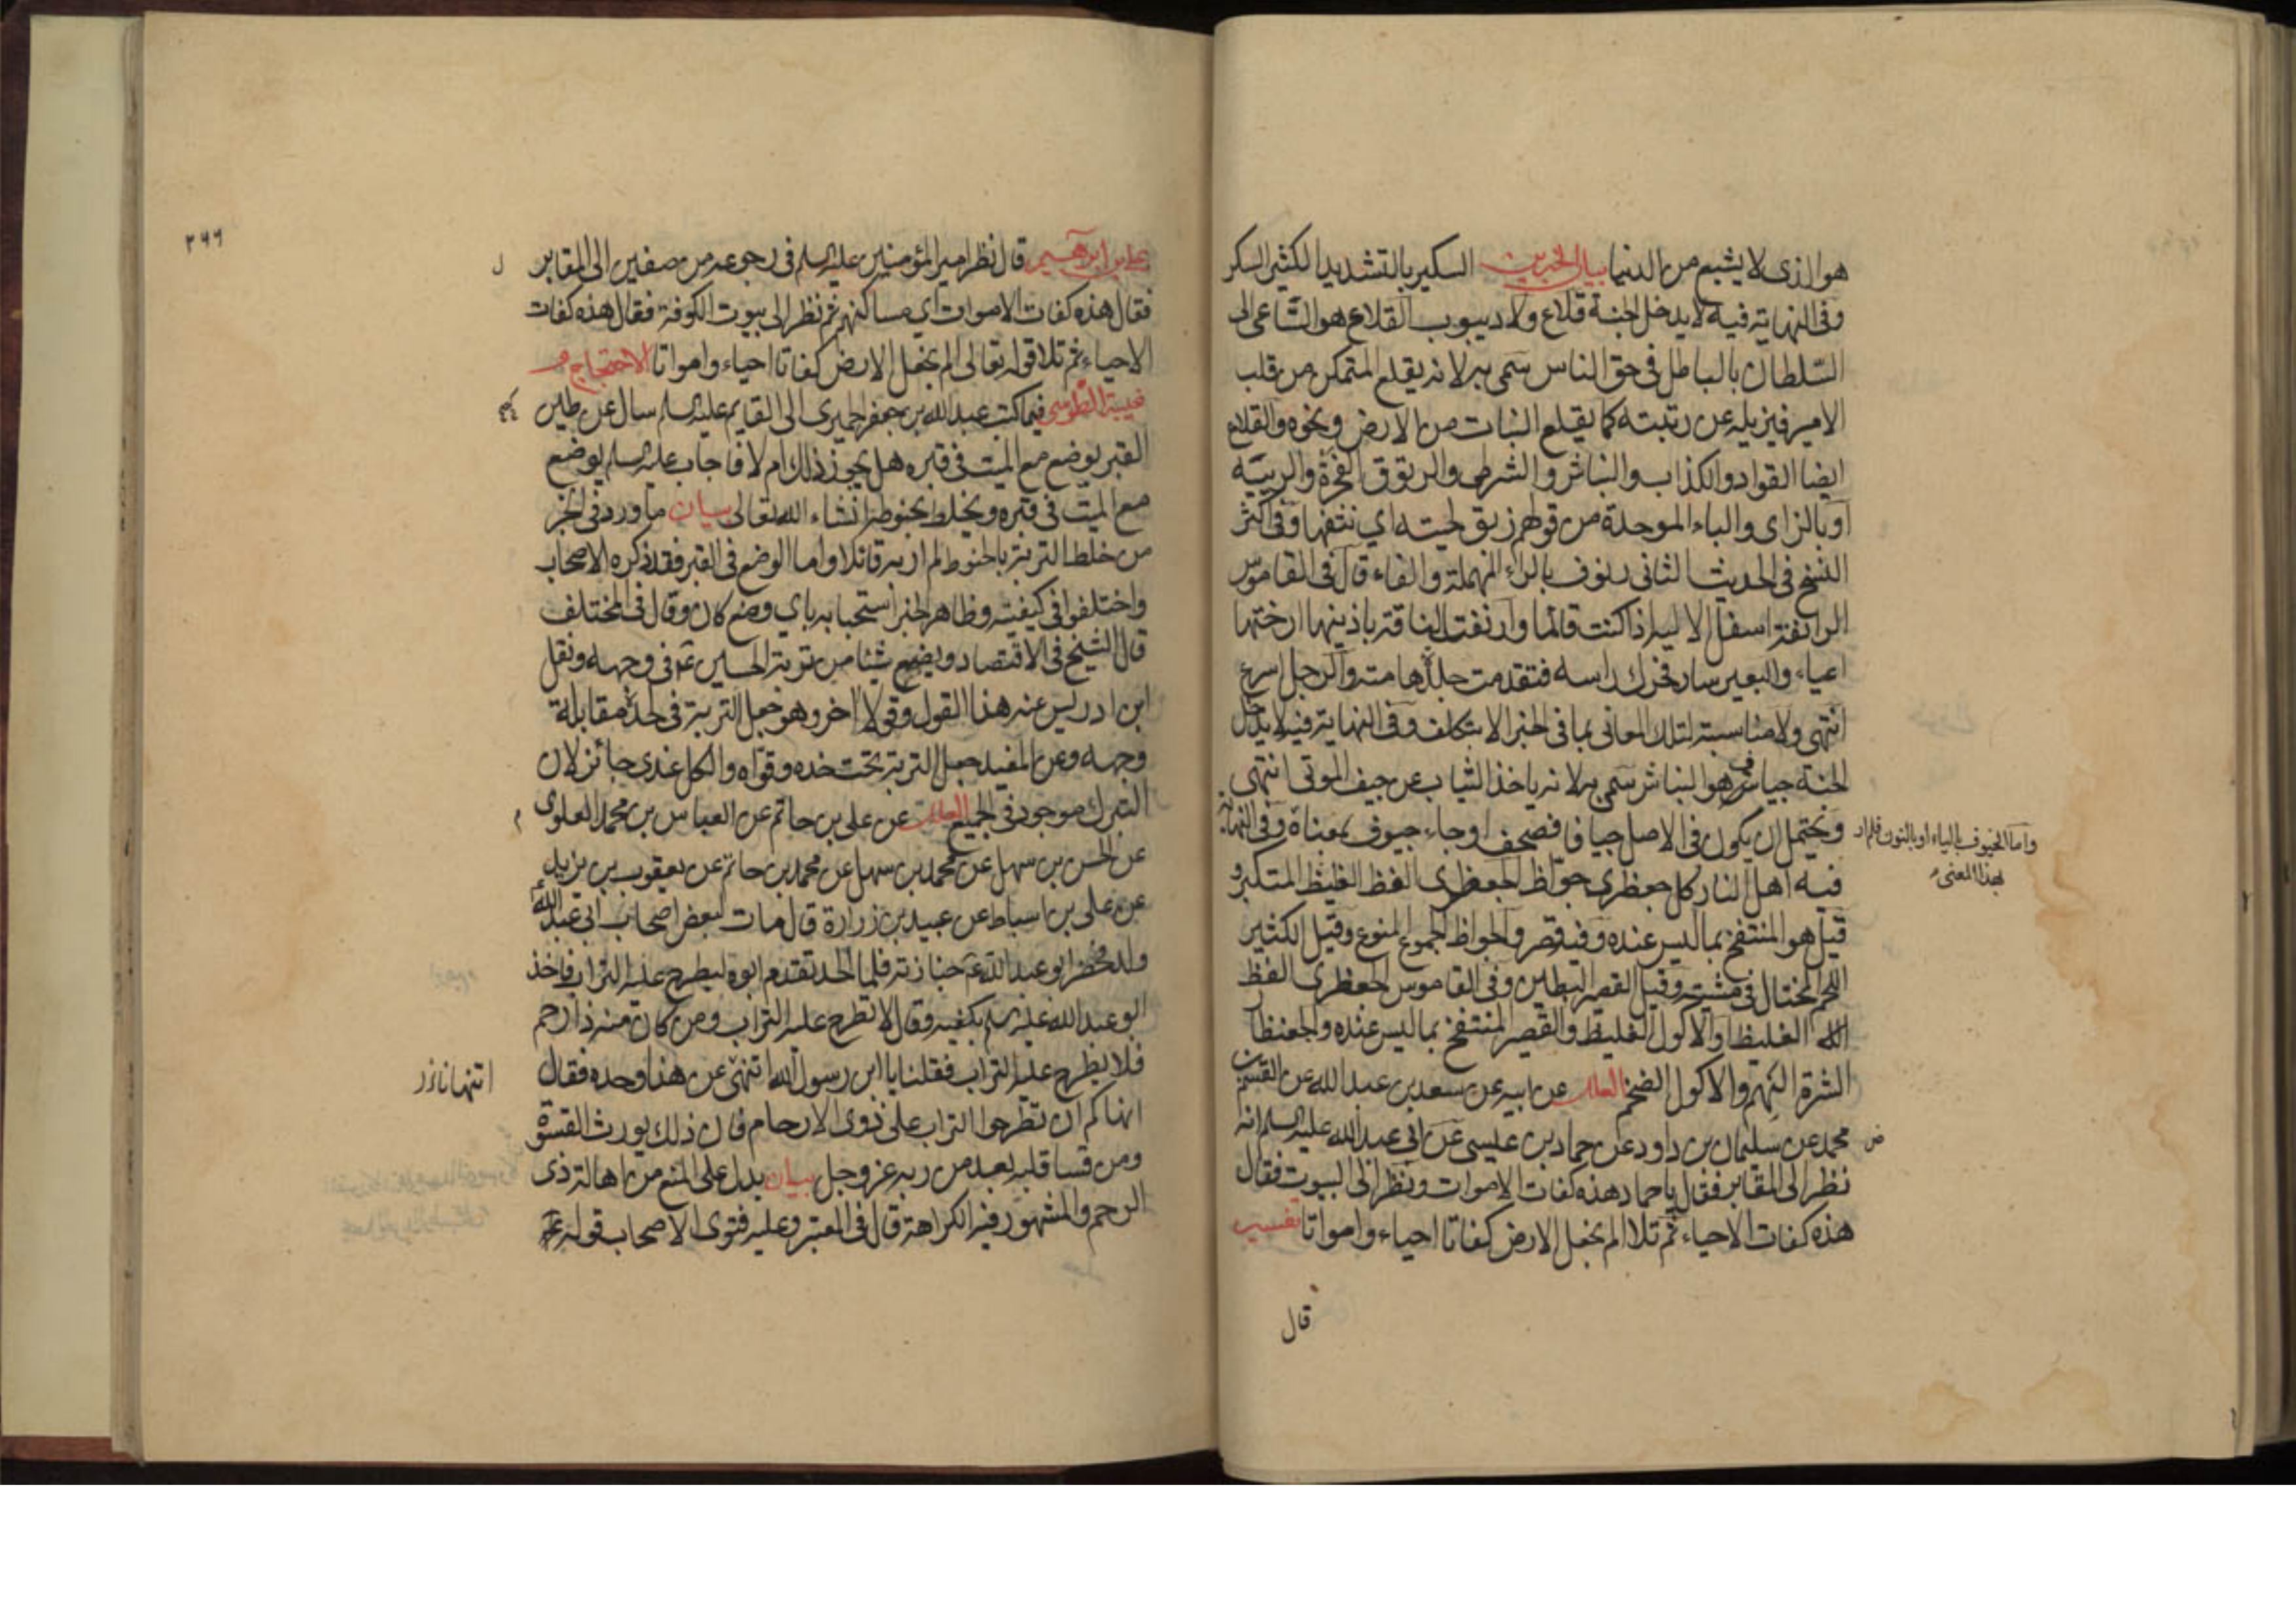 هو الذى لا يشبع من الدنيا بيان الخبرين السكير بالتشديد الكثير السكر
وفى النهاية فيه لا يدخل الجنة قلاع ولا ديبوب القلاع هو الساعى الى
السلطان بالباطل فى حق الناس سمى به لانه يقلع المتمكن من قلب
الامير فيزيله عن رتبته كما يقلع النبات من الارض ونحوه والقلاع
ايضا القواد والكذاب والنباش والشرطى والرتوق الفجرة والريبة
او بالزاى والباء الموحدة من قولهم زبق لحيته اي نتفها وفى اكثر
النسخ فى الحديث الثانى رنوف بالراء المهملة والفاء قال فى القاموس
الرانفة اسفل الالية اذا كنت قائما وارنفت الناقة باذنيها ارختهما
اعياء والبعير سار فحرك راسه فتقدمت جلدة هامته والرجل اسرع
انتهى ولا مناسبة لتلك المعانى بما فى الخبر الا بتكلف وفى النهاية فيه لا يدخل
الجنة جياف هو النباش سمى به لانه ياخذ الثياب عن جيف الموتى انتهى
ويحتمل ان يكون فى الاصل جيافا فصحف او جاء جيوف بمعناه وفى النهاية
واما الخيوف بالياء او بالنون فلم ار
بهذا المعنى
فيه اهل النار كل جعظرى جواظ الجعظرى الفظ الغليظ المتكبر و
قيل هو المنتفخ بما ليس عنده وفيه قصر والجواظ الجموع المنوع وقيل الكثير
اللحم المختال فى مشيته وقيل القصير البطين وفى القاموس الجعظرى الفظ
الغليظ او الاكول الغليظ والقصير المنتفخ بما ليس عنده والجعنظار
الشره النهم والاكول الضخم العلل عن ابيه عن سعد بن عبد الله عن القسم بن
محمد عن سليمان بن داود عن حماد بن عيسى عن ابى عبد الله عليه السلم انه
نظر الى المقابر فقال يا حماد هذه كفات الاموات ونظر الى البيوت فقال
هذه كفات الاحياء ثم تلا الم نجعل الارض كفاتا احياء وامواتا تفسير
قال
٢٩٩
على بن ابرهيم قال نظر امير المؤمنين عليه السلم فى رجوعه من صفين الى المقابر
فقال هذه كفات الاموات اي مساكنهم ثم نظر الى بيوت الكوفة فقال هذه كفات
الاحياء ثم تلا قوله تعالى الم نجعل الارض كفاتا احياء وامواتا الاحتجاج
غيبة الطوسى فيما كتب عبد الله بن جعفر الحميرى الى القايم عليه السلم سال عن طين
القبر يوضع مع الميت فى قبره هل يجوز ذلك ام لا فاجاب عليه السلم يوضع
مع الميت فى قبره ويخلط بحنوطه انشاء الله تعالى بيان ما ورد فى الخبر
من خلط التربة بالحنوط لم ار به قائلا واما الوضع فى القبر فقد ذكره الاصحاب
واختلفوا فى كيفيته وظاهر الخبر استحبابه باي وضع كان وقال فى المختلف
قال الشيخ فى الاقتصاد ويضع شيئا من تربة الحسين ع فى وجهه ونقل
ابن ادريس عنه هذا القول وقولا اخر وهو جعل التربة فى لحده مقابلة
وجهه وعن المفيد جعل التربة تحت خده وقواه والكل عندى جائز لان
التبرك موجود فى الجميع العلل عن على بن حاتم عن العباس بن محمد العلوى
عن الحسن بن سهل عن محمد بن سهل عن محمد بن حاتم عن يعقوب بن يزيد
عن على بن اسباط عن عبيد بن زرارة قال مات لبعض اصحاب ابى عبد الله ع
ولد فحضر ابو عبد الله ع جنازته فلما الحد تقدم ابوه ليطرح عليه التراب فاخذ
ابو عبد الله عليه السلم بكفيه وقال لا تطرح عليه التراب ومن كان منه ذا رحم
فلا يطرح عليه التراب فقلنا يا ابن رسول الله اتنهى عن هذا وحده فقال
انهاكم ان تطرحوا التراب على ذوى الارحام فان ذلك يورث القسوة
ومن قسا قلبه بعد من ربه عز وجل بيان يدل على المنع من اهالة ذى
الرحم والمشهور فيه الكراهة قال فى المعتبر وعليه فتوى الاصحاب قوله ع